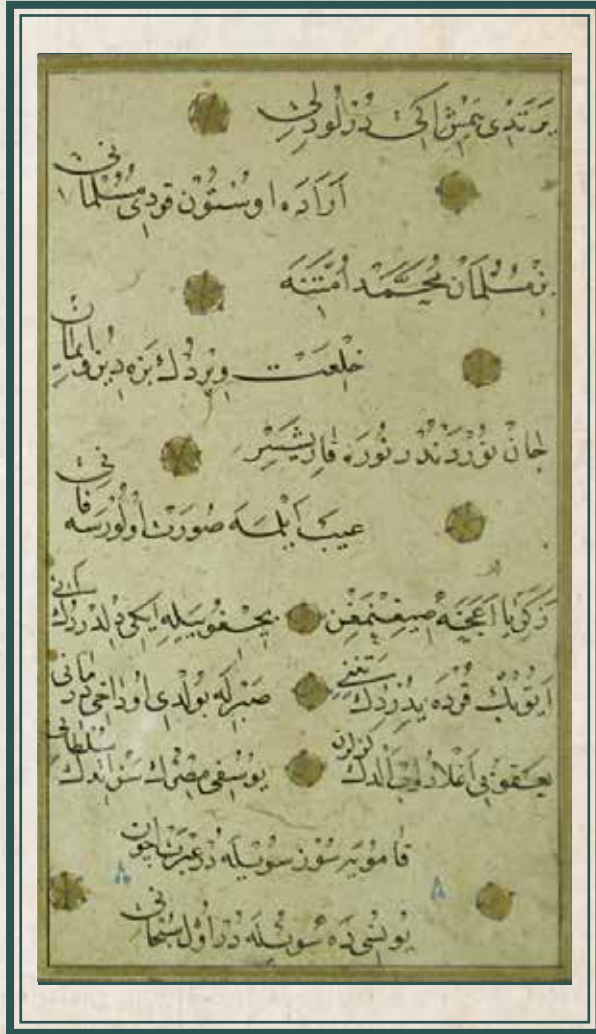 يرتدى يمش اكى دزلو دلى
آراده اوستون قودى مسلمانى
بز مسلمان محمد امتنه
خلعت ويردك بزه دين و ايمان
جان نوردندر نوره قاريشير
عيب ايلمه صورت اولورسه فانى
زكريا اغجه صيغنمغن بچقويله ايكى دلدردك آنى
ايوبك قورده يدردك تننى صبرله بولدى اول دخى درمانى
يعقوبى اغلادوب آلدك كوزلرن يوسفى مصرك سن اتدك سلطانى
قامو بر سوز سويله در عبرت ايچون
يونسى ده سويله در اول سبحانى